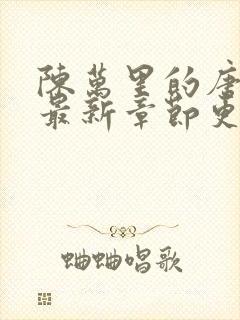 陳萬里的唐
最新章節更
蛐蛐唱歌